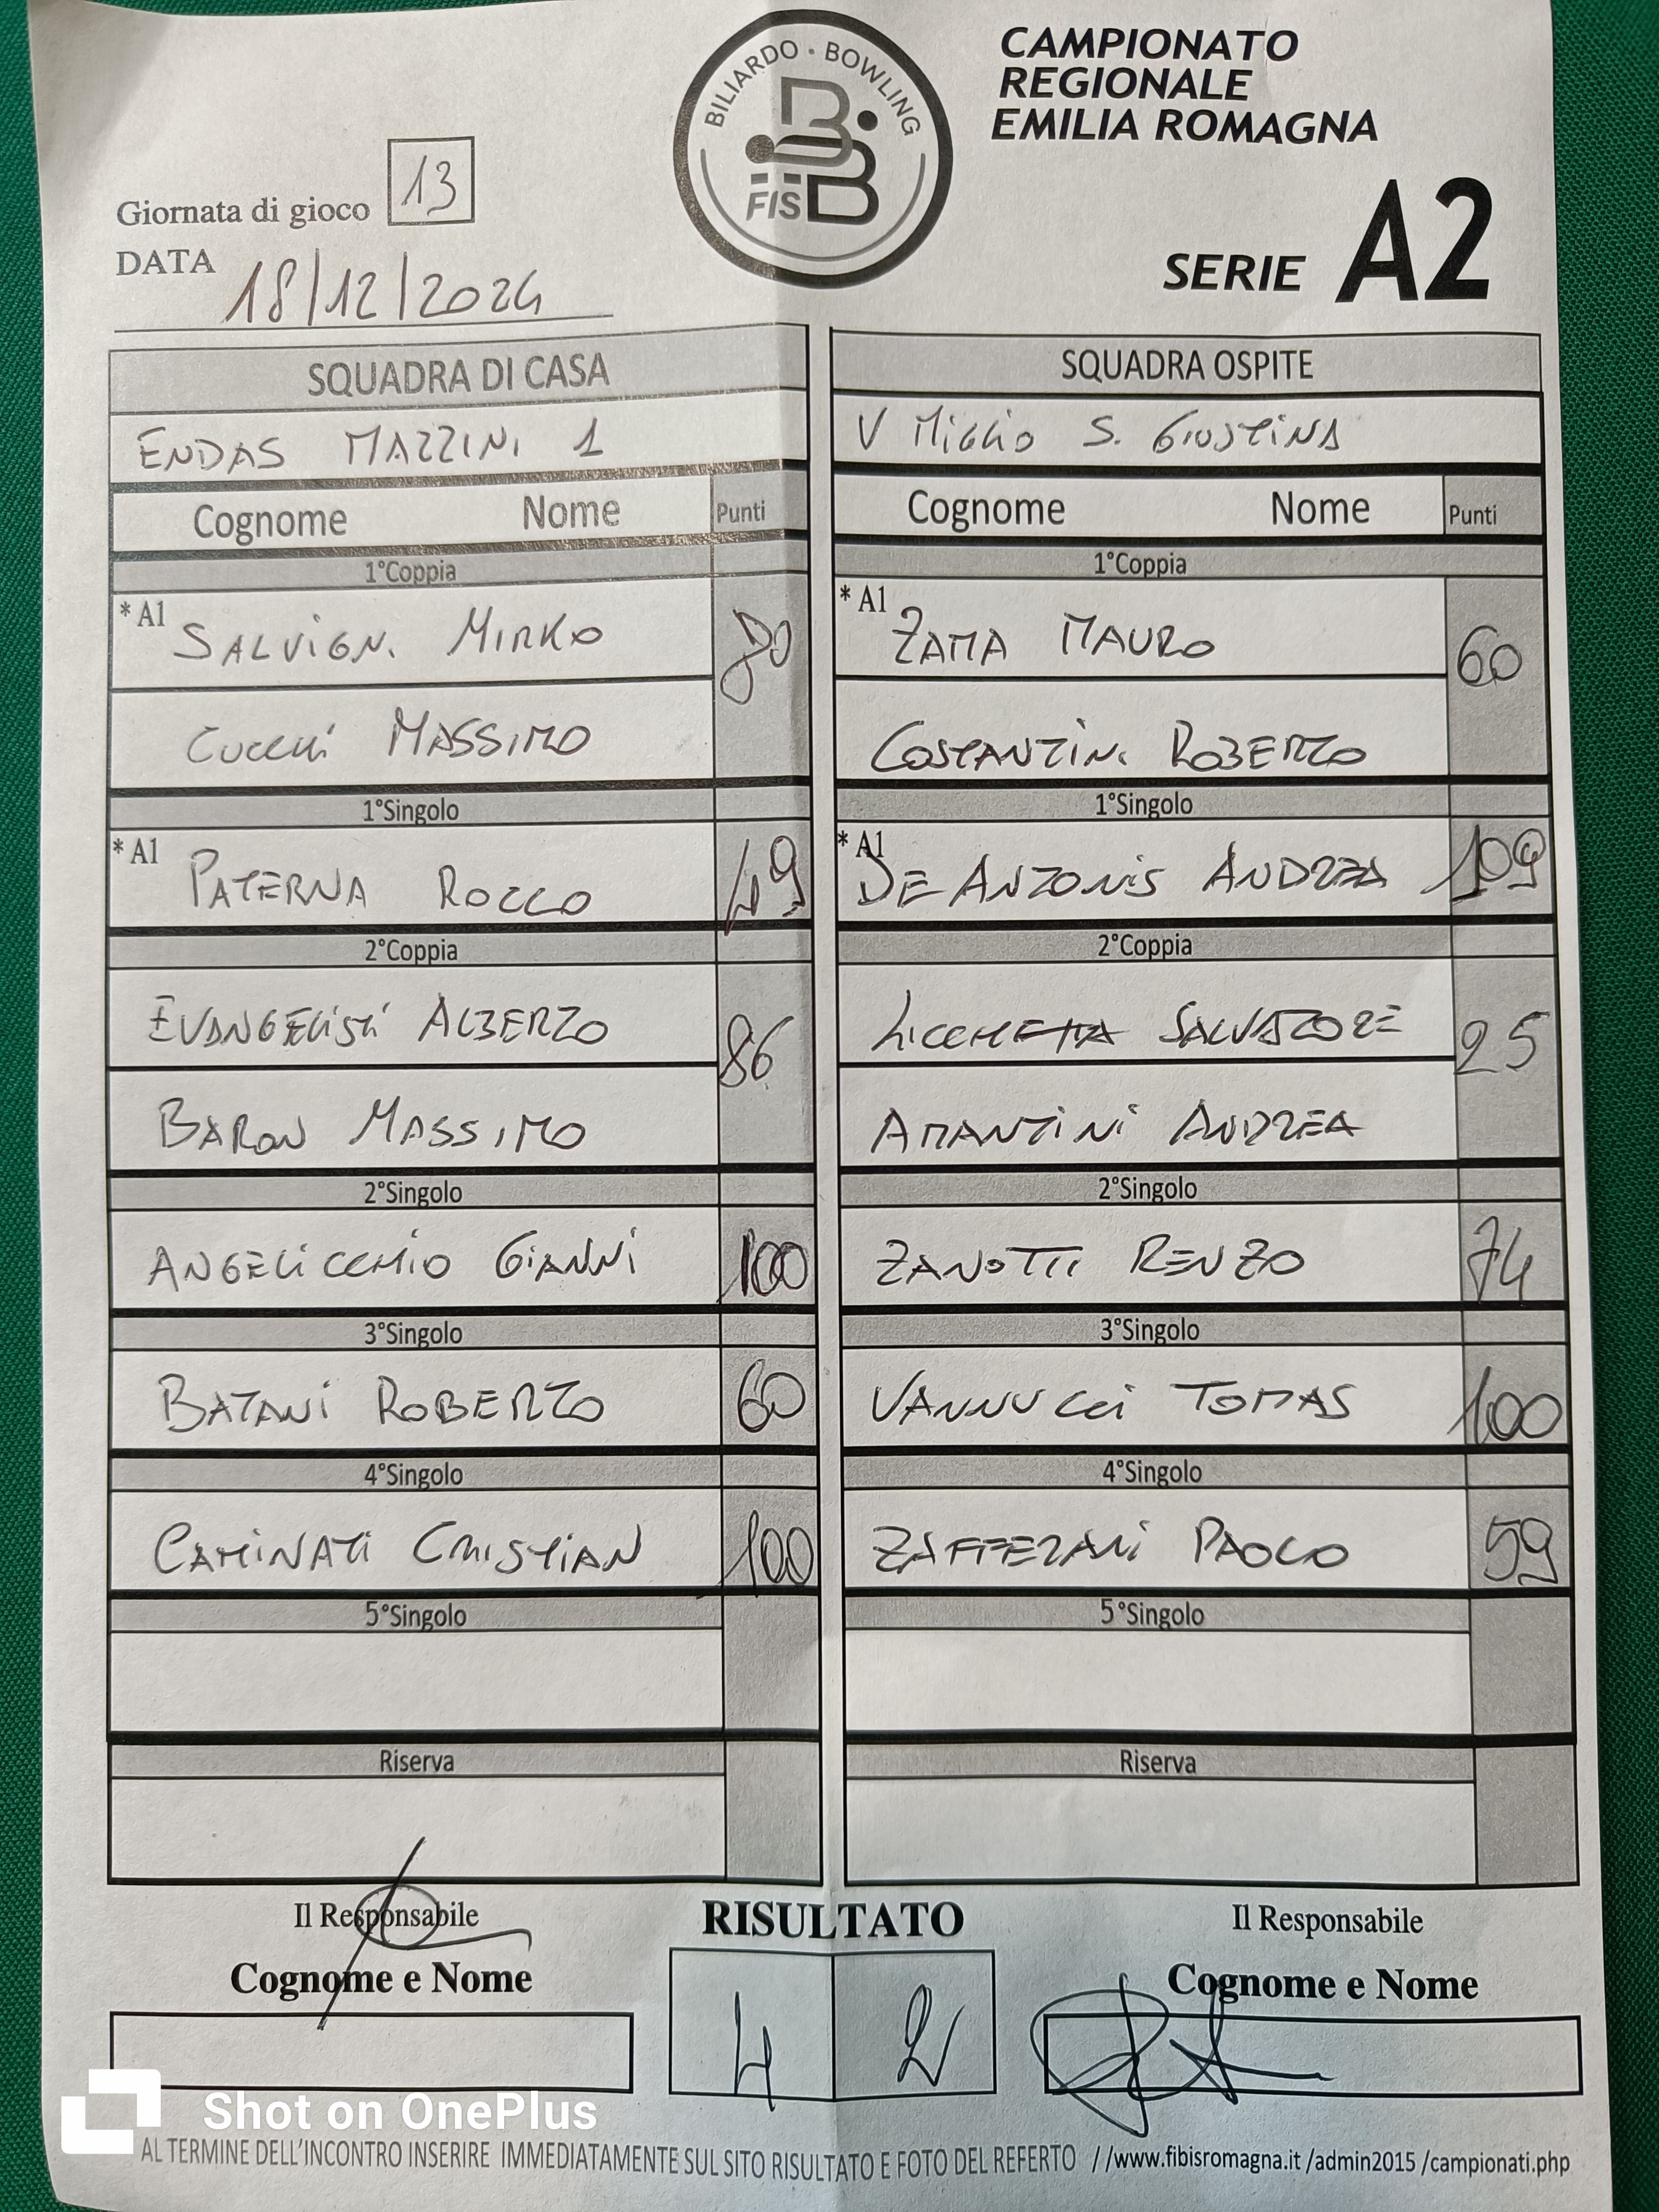 BILIARDO • BOWLING
FISBB
CAMPIONATO
REGIONALE
EMILIA ROMAGNA
SERIE A2
Giornata di gioco 13
DATA 18/12/2024
SQUADRA DI CASA SQUADRA OSPITE
ENDAS MAZZINI 1 V MIGLIO S. GIUSTINA
Cognome Nome Punti Cognome Nome Punti
1°Coppia 1°Coppia
* A1 SALVIGNI MIRKO 80 * A1 ZAMA MAURO 60
CUCCHI MASSIMO COSTANTINI ROBERTO
1°Singolo 1°Singolo
* A1 PATERNA ROCCO 49 * A1 DE ANTONIS ANDREA 109
2°Coppia 2°Coppia
EVANGELISTI ALBERTO 86 LICCHETTA SALVATORE 25
BARON MASSIMO AMANTINI ANDREA
2°Singolo 2°Singolo
ANGELICCHIO GIANNI 100 ZANOTTI RENZO 74
3°Singolo 3°Singolo
BATANI ROBERTO 60 VANNUCCI TOMAS 100
4°Singolo 4°Singolo
CAMINATI CRISTIAN 100 ZAFFERANI PAOLO 59
5°Singolo 5°Singolo
Riserva Riserva
Il Responsabile RISULTATO Il Responsabile
Cognome e Nome Cognome e Nome
4 2
Shot on OnePlus
AL TERMINE DELL'INCONTRO INSERIRE IMMEDIATAMENTE SUL SITO RISULTATO E FOTO DEL REFERTO //www.fibisromagna.it /admin2015 /campionati.php